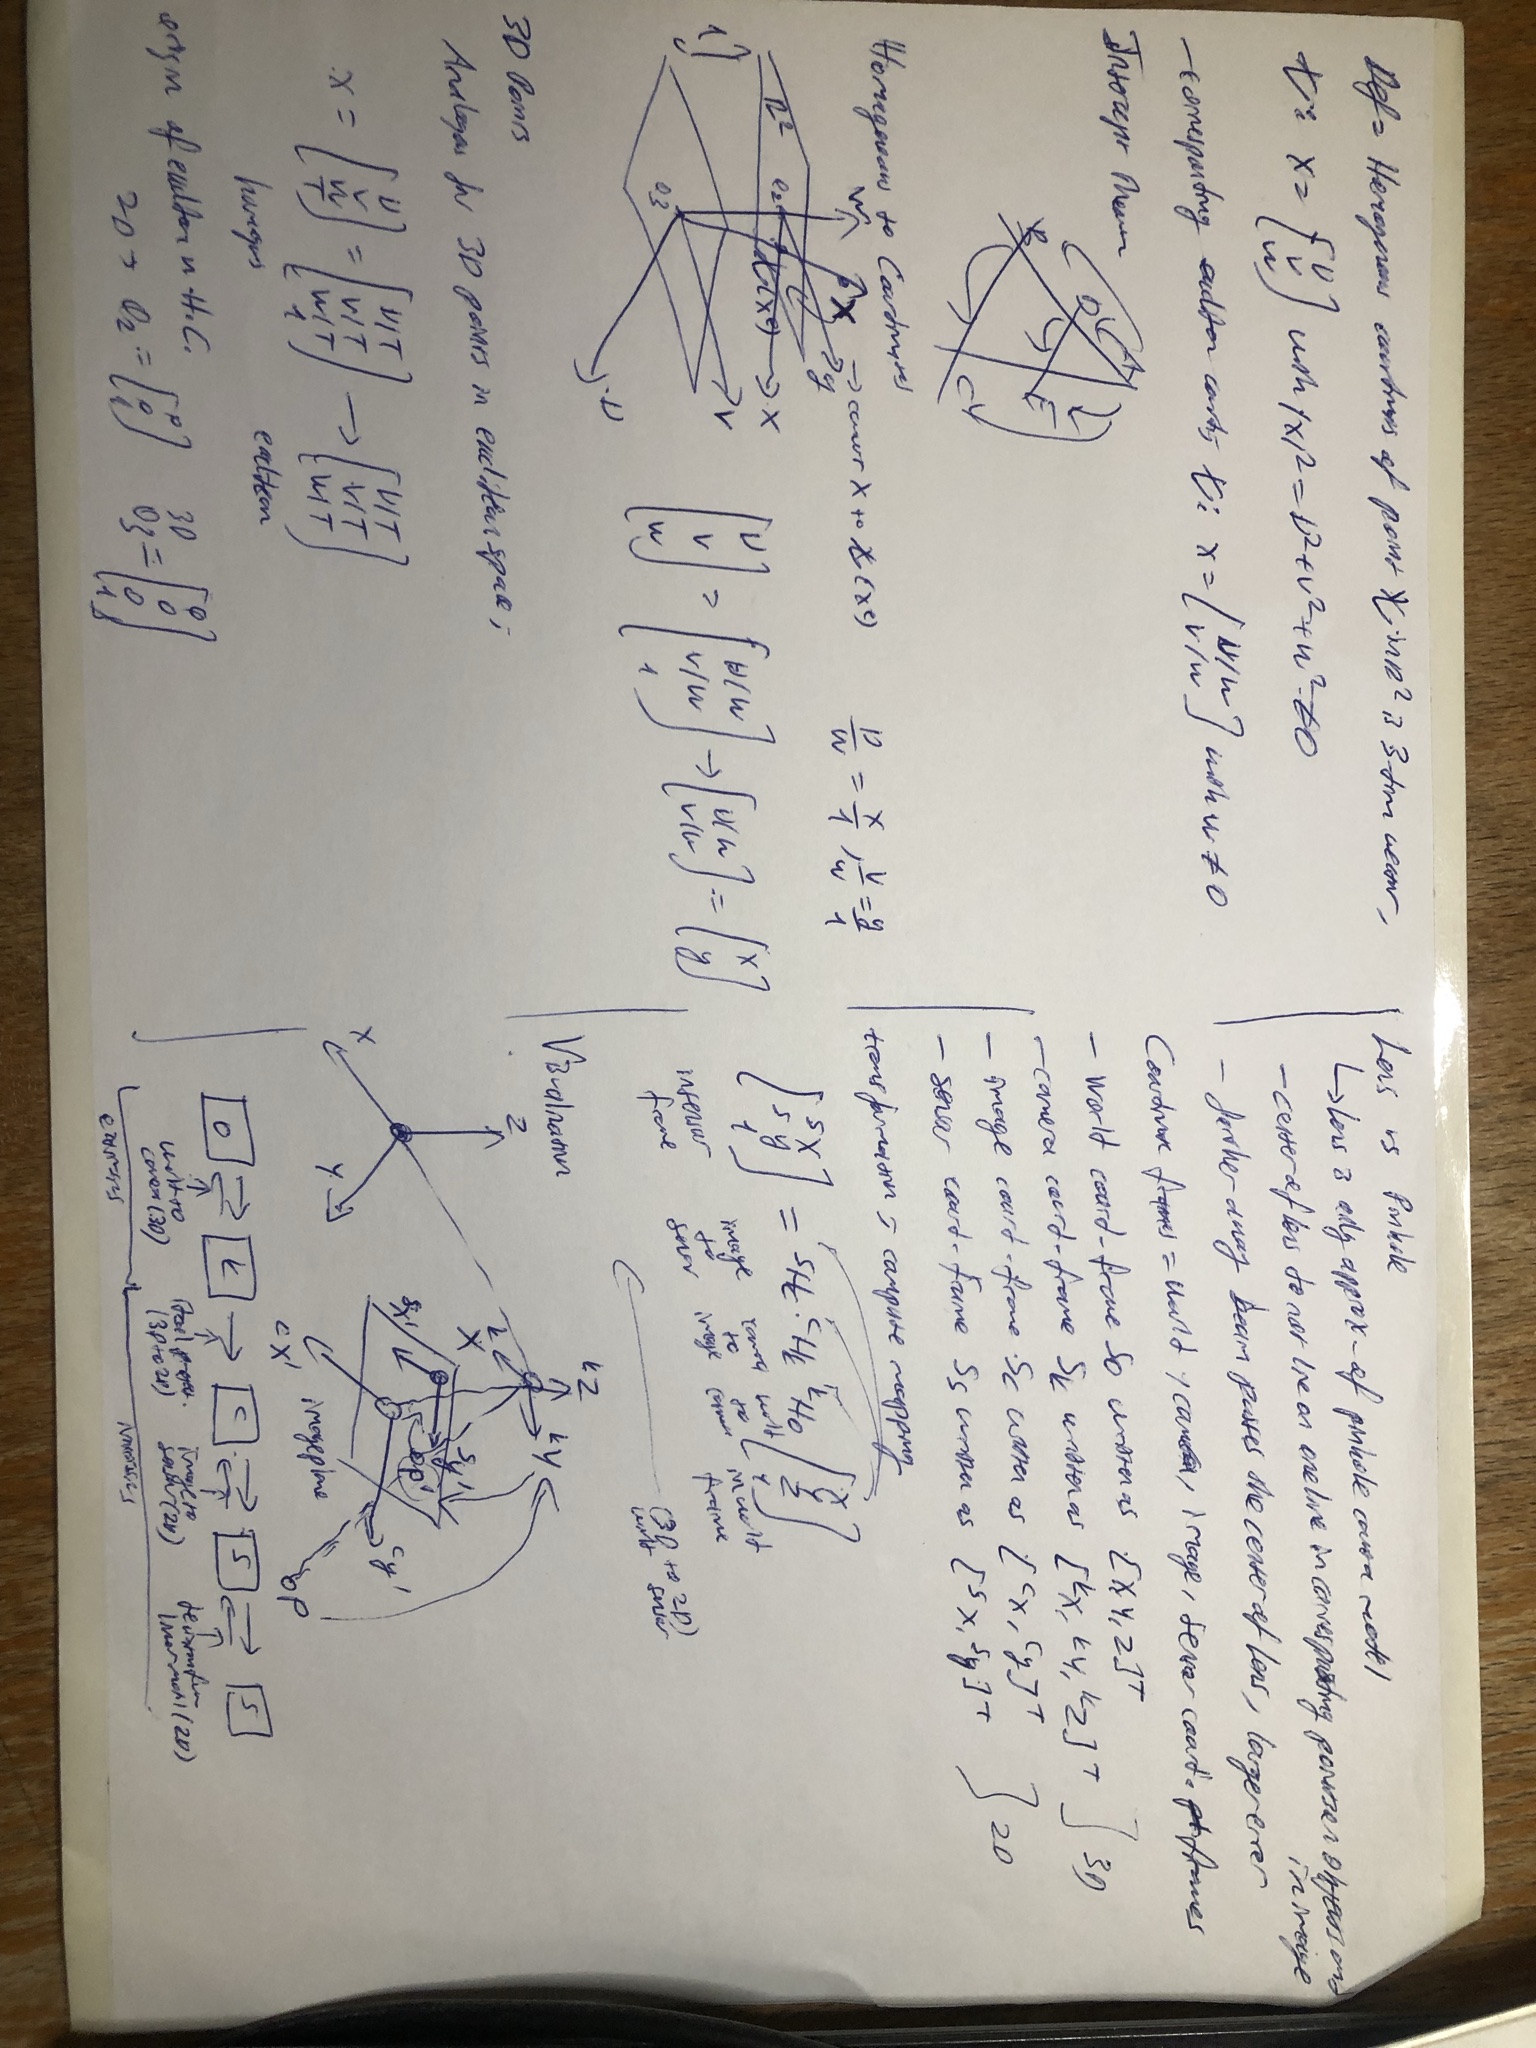 Def = Homogenous coordinates of point χ in R² is 3-dim vector
χ: x = [u v w] with |x|² = u² + v² + w² ≠ 0
- corresponding euclidean coords χ: x = [u/w v/w] with w ≠ 0
Intercept theorem
Homogenous to Coordinates
→ convert x to χ(xe)
u/w = x/1, v/w = y/1
[u v w] = [u/w v/w 1] → [u/w v/w] = [x y]
R²
O2
O3
w
x
y
u
v
3D Points
Analogus for 3D points in euclidean space:
x = [u v w T] = [u/T v/T w/T 1] → [u/T v/T w/T]
homogenous
euclidean
origin of euclidean in H.C.
2D → O2 := [0 0 1]
3D O3 := [0 0 0 1]
Lens vs Pinhole
↳ lens is only approx. of pinhole camera model
- center of lens do not lie on one line in corresponding points on objects and in image
- farther away beam passes the center of lens, larger error
Coordinate frames = world, camera, image, sensor coord. frames
- World coord-frame So written as [X, Y, Z]T
- camera coord-frame Sk written as [kx, ky, kz]T } 3D
- image coord-frame Sc written as [cx, cy]T
- sensor coord-frame Ss written as [sx, sy]T } 2D
transformation is complete mapping
[sx sy 1] = sHc · cHk · kHo [X Y Z 1]
in sensor frame
image to sensor
camera to image
world to camera
in world frame
(3D to 2D)
world to sensor
Visualization
Z
X
Y
kZ
kX
kY
sx'
sy'
cx'
cy'
op'
op
image plane
O ⇄ k → c ⇄ s ⇄ s
world to camera (3D)
(3D to 2D)
image to sensor (2D)
(2D)
extrinsics
intrinsics